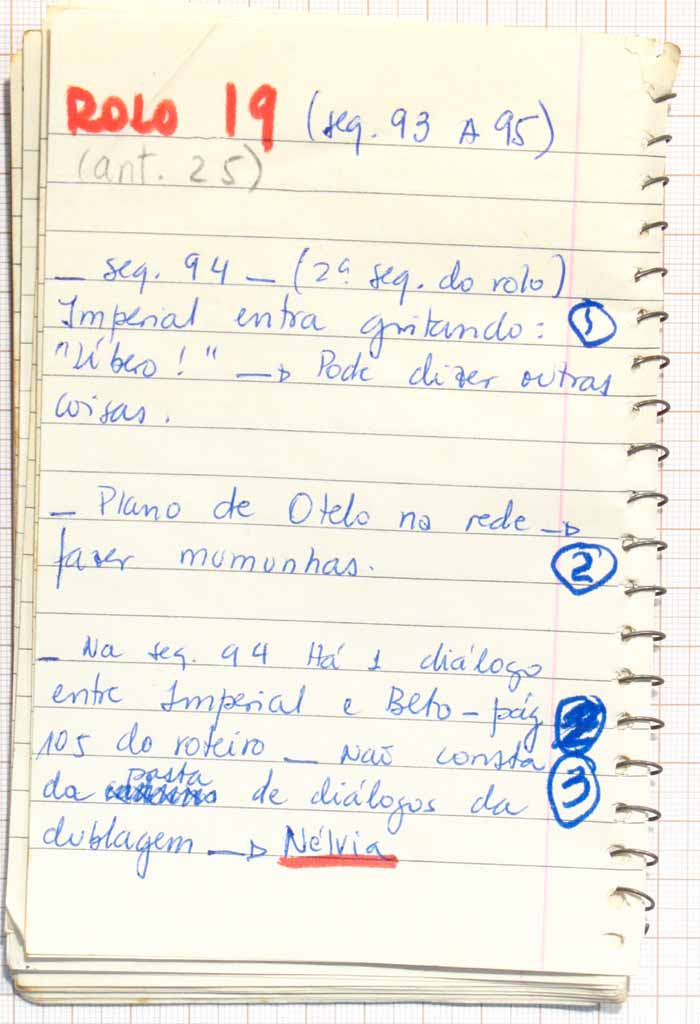 ROLO 19 (seq. 93 A 95)
(ant. 25)
_ seq. 94 _ (2ª seq. do rolo)
Imperial entra gritando: 1
"Líbero!" → Pode dizer outras
coisas.
_ Plano de Otelo na rede →
fazer mumunhas. 2
_ Na seq. 94 Há 1 diálogo
entre Imperial e Beto - pág
105 do roteiro _ Não consta
da pasta de diálogos da 3
dublagem → Nélvia